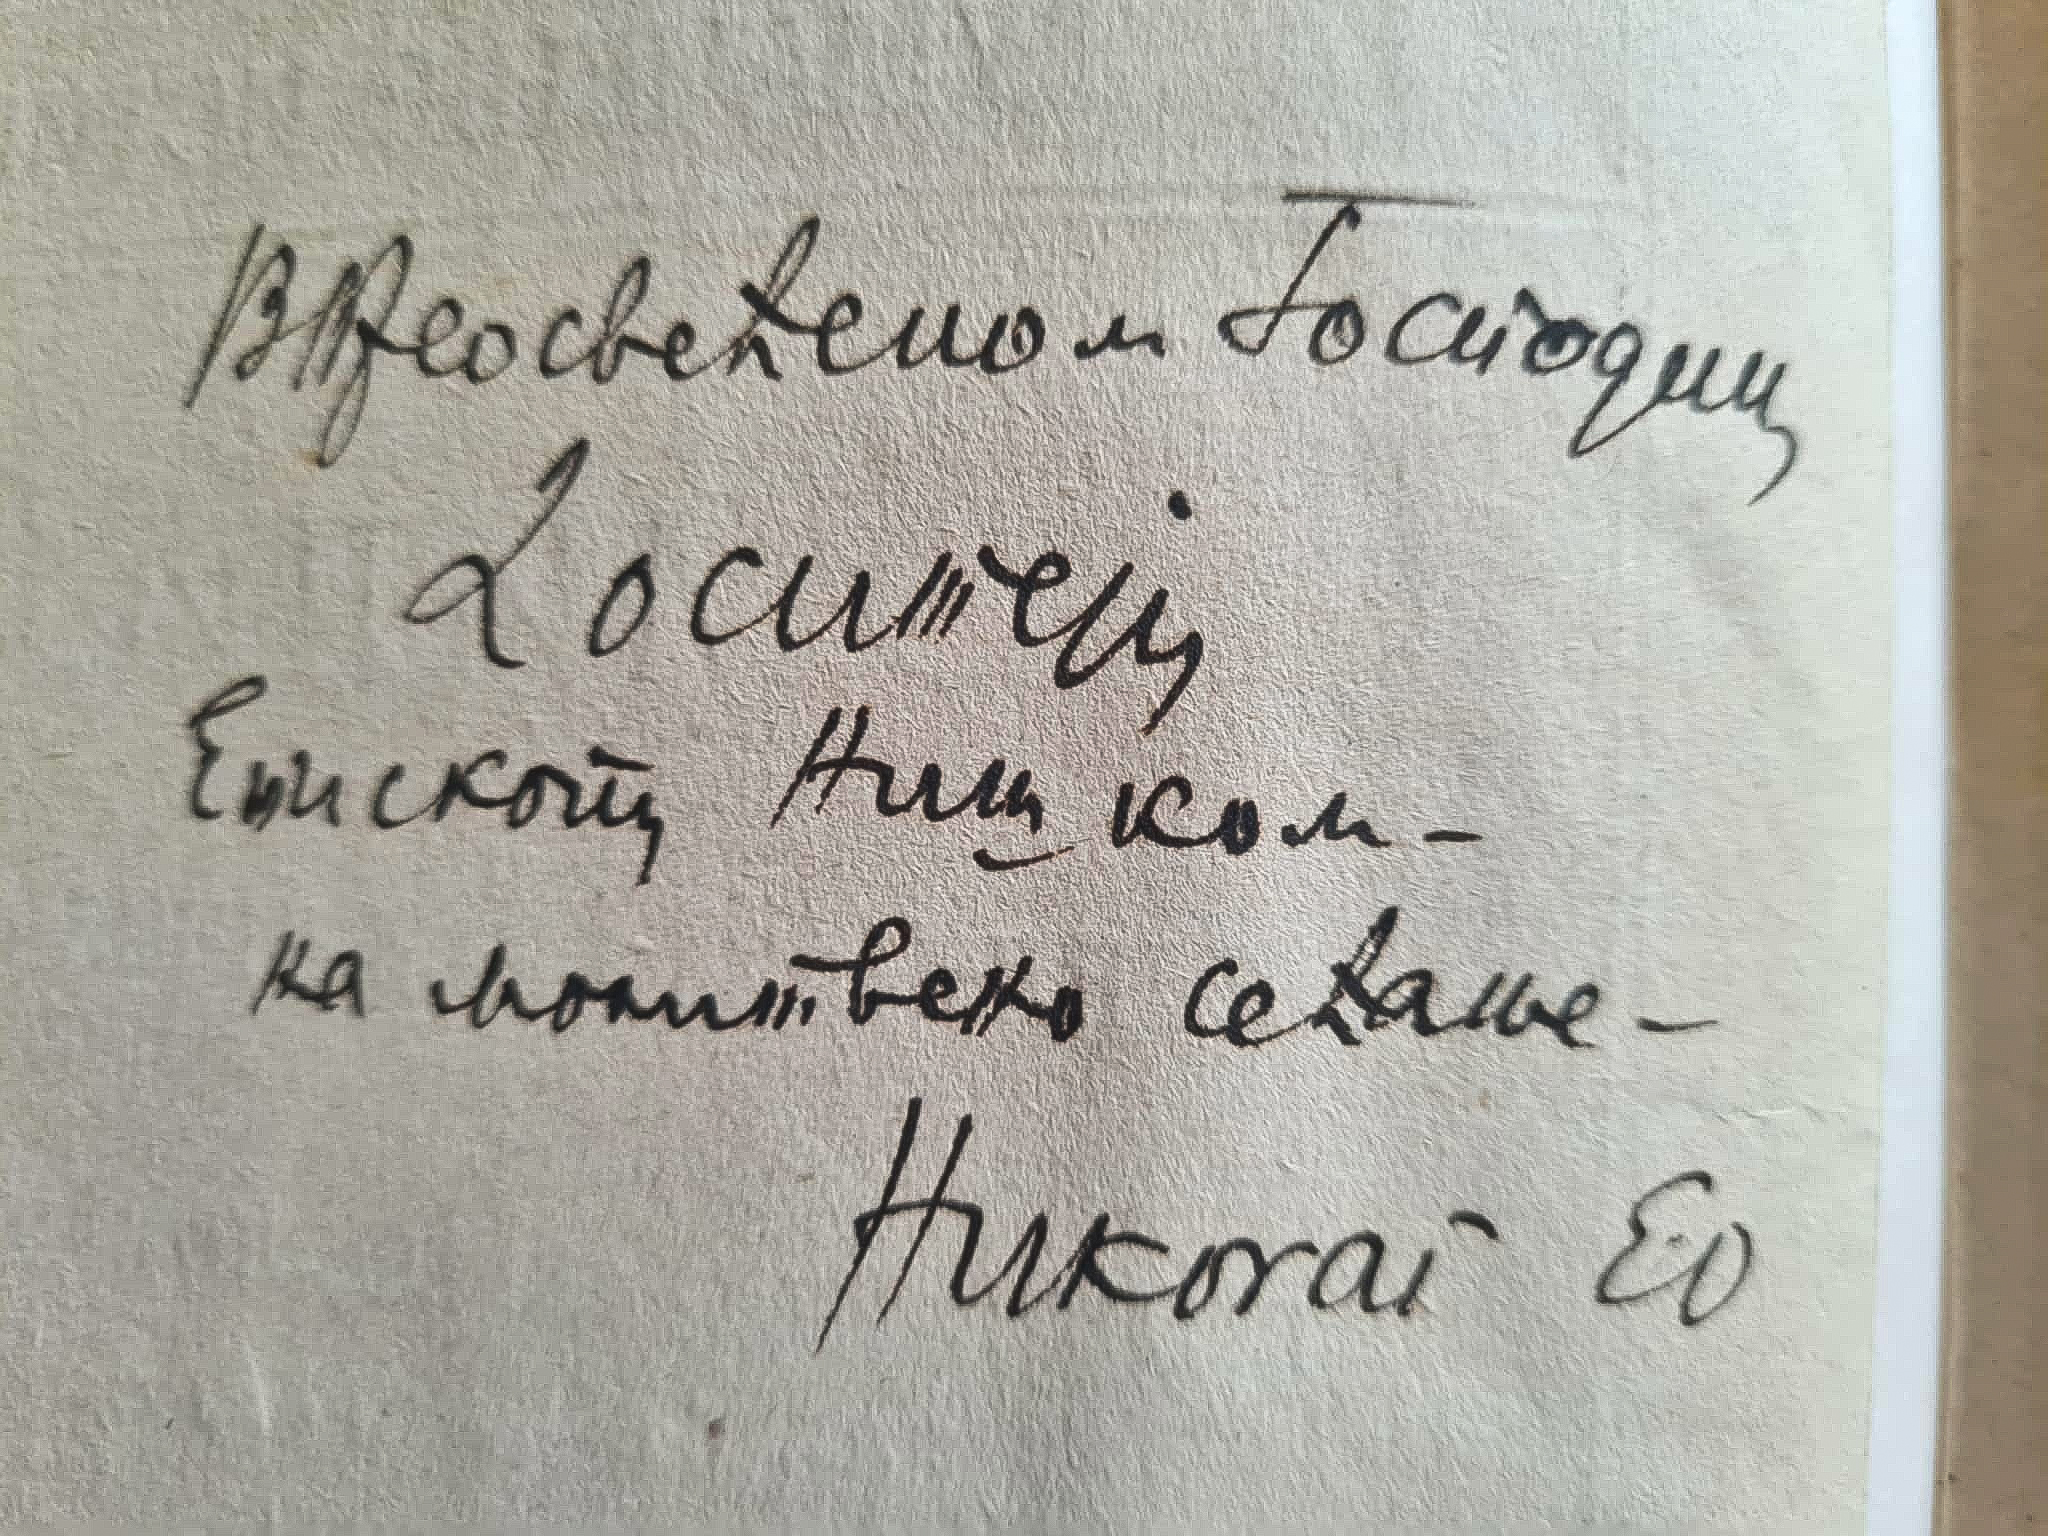 Вπреосвећеном Господину
Доситеју
Епископу Нишком -
на молитвено сећање -
Николај ЕО